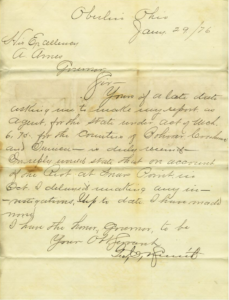 Oberlin Ohio
Jany 29/76
His Excellency
A Ames
Governor
Sir
Yours of a late date
asking me to make my report as
Agent for the State under act of Mch
for the Counties of
and is duly received
In reply would state that on account
of the at Point in
Oct I delayed making any in-
vestigations. Up to date I have made
none
I have the honor, Governor, to be
Your Obt Servant